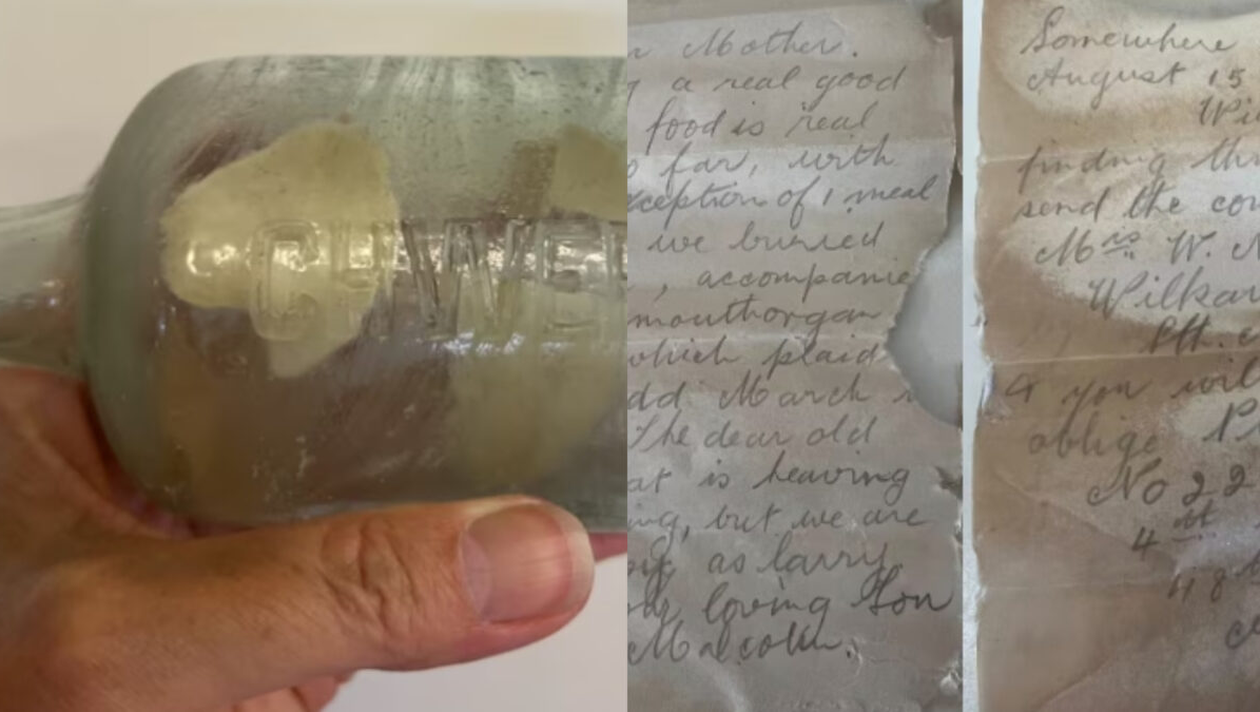 Mother.
a real good
food is real
far, with
xception of 1 meal
we buried
, accompanie
mouthorgan
which plaid
dd March
The dear old
at is heaving
ing, but we are
as larry.
loving Son
Malcolm.
Somewhere
August 15
Wi
finding th
send the co
Mrs W. N
Wilkaw
Pth.
& you wil
oblige P
No 22
4
48